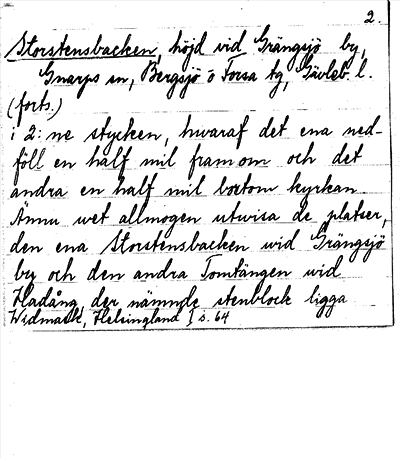 2.
Storstensbacken, höjd vid Grängsjö by,
Gnarps sn, Bergsjö o Forsa tg, Gävleb. l.
(forts.)
i 2:ne stycken, hwaraf det ena ned-
föll en half mil framom och det
andra en half mil bortom kyrkan.
Ännu wet allmogen utwisa de platser,
den ena Storstensbacken wid Grängsjö
by och den andra Tomtängen wid
Hadång, der nämnde stenblock ligga
Widmark, Helsingland I s. 64